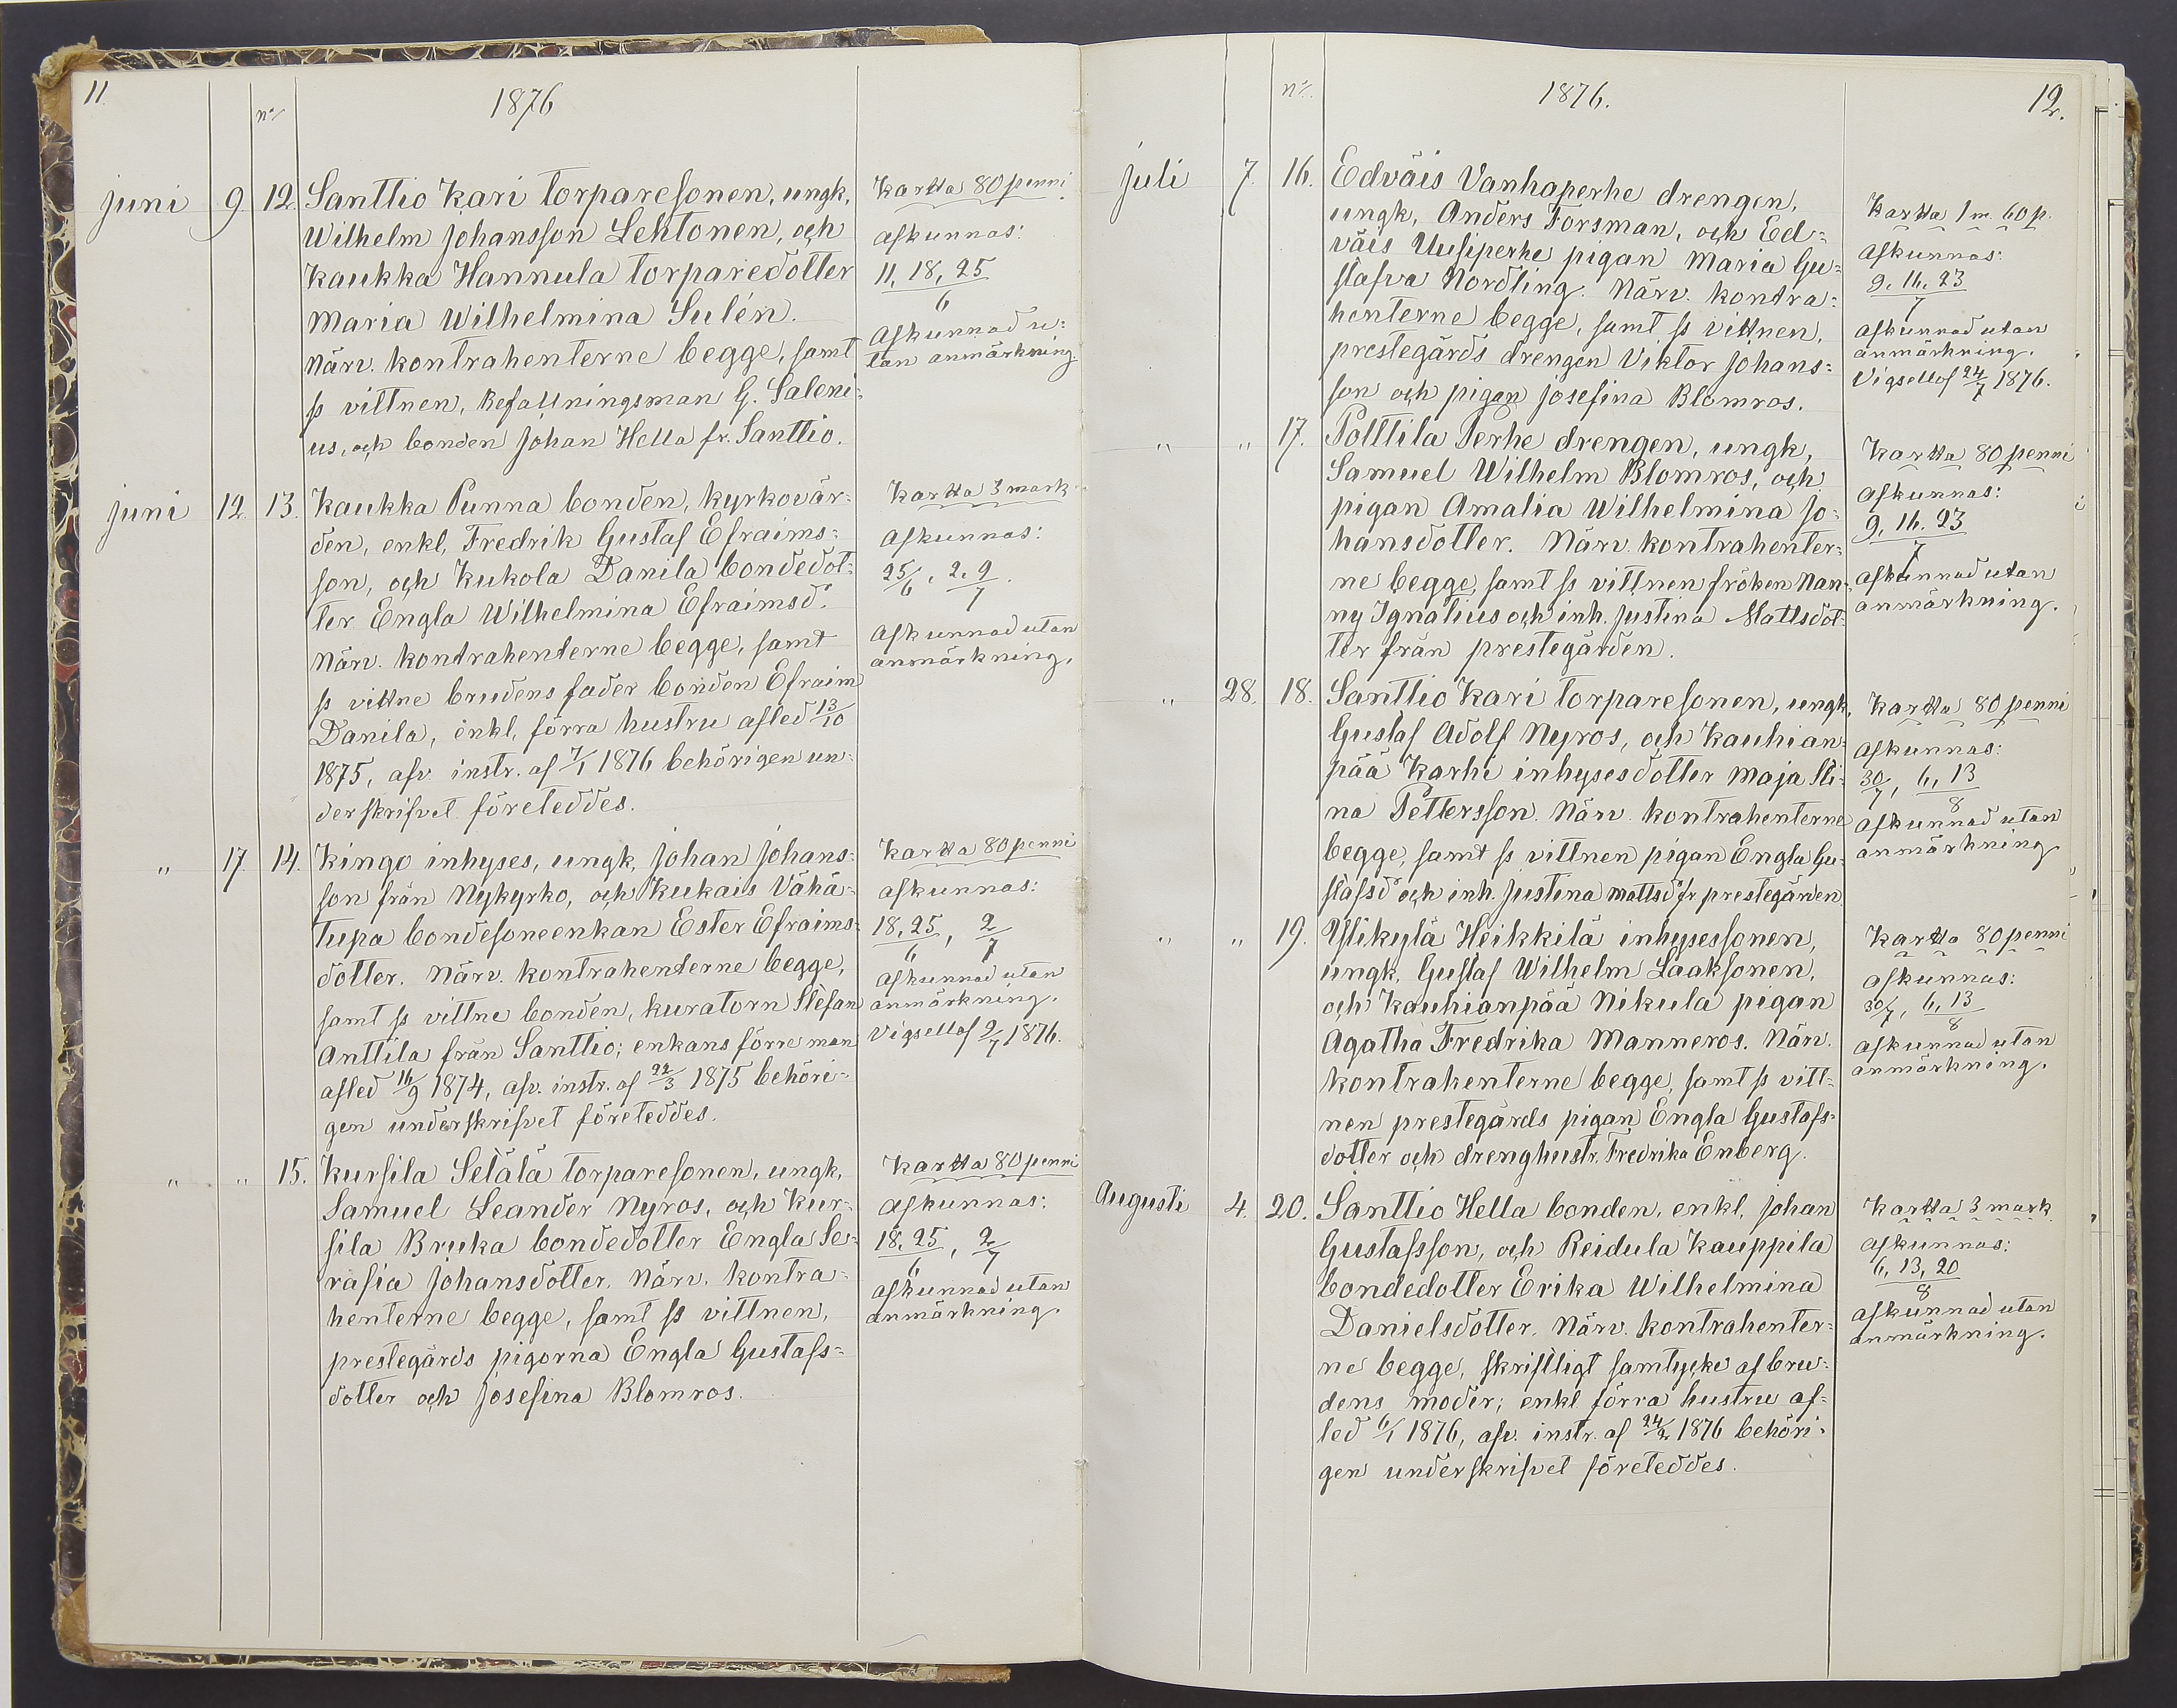 11.
n:o
1876
juni 9. 12. Santtio Kari torparesonen, ungk,
Wilhelm Johansson Lehtonen, och
Kaukka Hannula torparedotter
Maria Wilhelmina Sulén.
Närv. kontrahenterne begge, samt
ss vittnen, Befallningsman G. Saleni-
us, och bonden Johan Hella fr. Santtio.
Kartta 80 penni
afkunnas:
11, 18, 25
6
Afkunnad u=
tan anmärkning.
juni 12. 13. Kaukka Punna bonden, kyrkovär=
den, enkl, Fredrik Gustaf Efraims=
son, och Kukola Danila bondedot=
ter Engla Wilhelmina Efraimsd:r
Närv. kontrahenterne begge, samt
ss vittne brudens fader bonden Efraim
Danila, enkl. förra hustru afled 13/10
1875, afv. instr. af 7/1 1876 behörigen un=
derskrifvet företeddes.
Kartta 3 mark
Afkunnas:
25/6, 2. 9.
7
Afkunnad utan
anmärkning.
" 17. 14. Kingo inhyses, ungk, Johan Johans=
son från Nykyrko, och Kukais Vähä=
tupa bondesoneenkan Ester Efraims=
dotter. Närv. kontrahenterne begge,
samt ss vittne bonden, kuratorn Stefan
Anttila från Santtio; enkans förre man
afled 16/9 1874, afv. instr. af 22/3 1875 behöri=
gen underskrifvet företeddes.
Kartta 80 penni
afkunnas:
18, 25, 2
6 7
afkunnad utan
anmärkning.
Vigsellof 2/7 1876.
" " 15. Kursila Setälä torparesonen, ungk,
Samuel Leander Nyros, och Kur=
sila Bruka bondedotter Engla Se=
rafia Johansdotter. Närv. kontra=
henterne begge, samt ss vittnen,
prestegårds pigorna Engla Gustafs=
dotter och Josefina Blomros.
Kartta 80 penni
afkunnas:
18, 25, 2
6 7
afkunnad utan
anmärkning.
n:o
1876.
12.
juli 7. 16. Edväis Vanhaperhe drengen,
ungk, Anders Forsman, och Ed=
väis Uusiperhe pigan Maria Gu=
stafva Nordling. Närv. kontra=
henterne begge, samt ss vittnen,
prestegårds drengen Viktor Johans=
son och pigan Josefina Blomros.
Kartta 1 m. 60 p.
Afkunnas:
9. 16. 23
7
afkunnad utan
anmärkning.
Vigsellof 24/7 1876.
" " 17. Polttila Perhe drengen, ungk,
Samuel Wilhelm Blomros, och
pigan Amalia Wilhelmina Jo=
hansdotter. Närv. kontrahenter=
ne begge, samt ss vittnen fröken Nan=
ny Ignatius och inh. Justina Mattsdot=
ter från prestegården.
Kartta 80 penni
afkunnas:
9. 16. 23
7
afkunnad utan
anmärkning.
" 28. 18. Santtio Kari torparesonen, ungk,
Gustaf Adolf Nyros, och Kauhian=
pää Karhi inhysesdotter Maja Sti=
na Pettersson. Närv. kontrahenterne
begge, samt ss vittnen pigan Engla Gu=
stafsd:r och inh. Justina Mattsd:r fr. prestegården
Kartta 80 penni
afkunnas:
30/7, 6, 13
8
afkunnad utan
anmärkning
" " 19. Ylikylä Heikkilä inhysessonen,
ungk, Gustaf Wilhelm Laaksonen,
och Kauhianpää Nikula pigan
Agatha Fredrika Manneros. Närv.
kontrahenterne begge, samt ss vitt=
nen prestegårds pigan Engla Gustafs=
dotter och drenghustr. Fredrika Enberg.
Kartta 80 penni
afkunnas:
30/7, 6, 13
8
afkunnad utan
anmärkning.
Augusti 4. 20. Santtio Hella bonden, enkl. Johan
Gustafsson, och Reidula Kauppila
bondedotter Erika Wilhelmina
Danielsdotter. Närv. kontrahenter=
ne begge, skriftligt samtycke af bru=
dens moder; enkl. förra hustru af=
led 6/1 1876, afv. instr. af 24/2 1876 behöri=
gen underskrifvet företeddes.
Kartta 3 mark
afkunnas:
6, 13, 20
8
afkunnad utan
anmärkning.